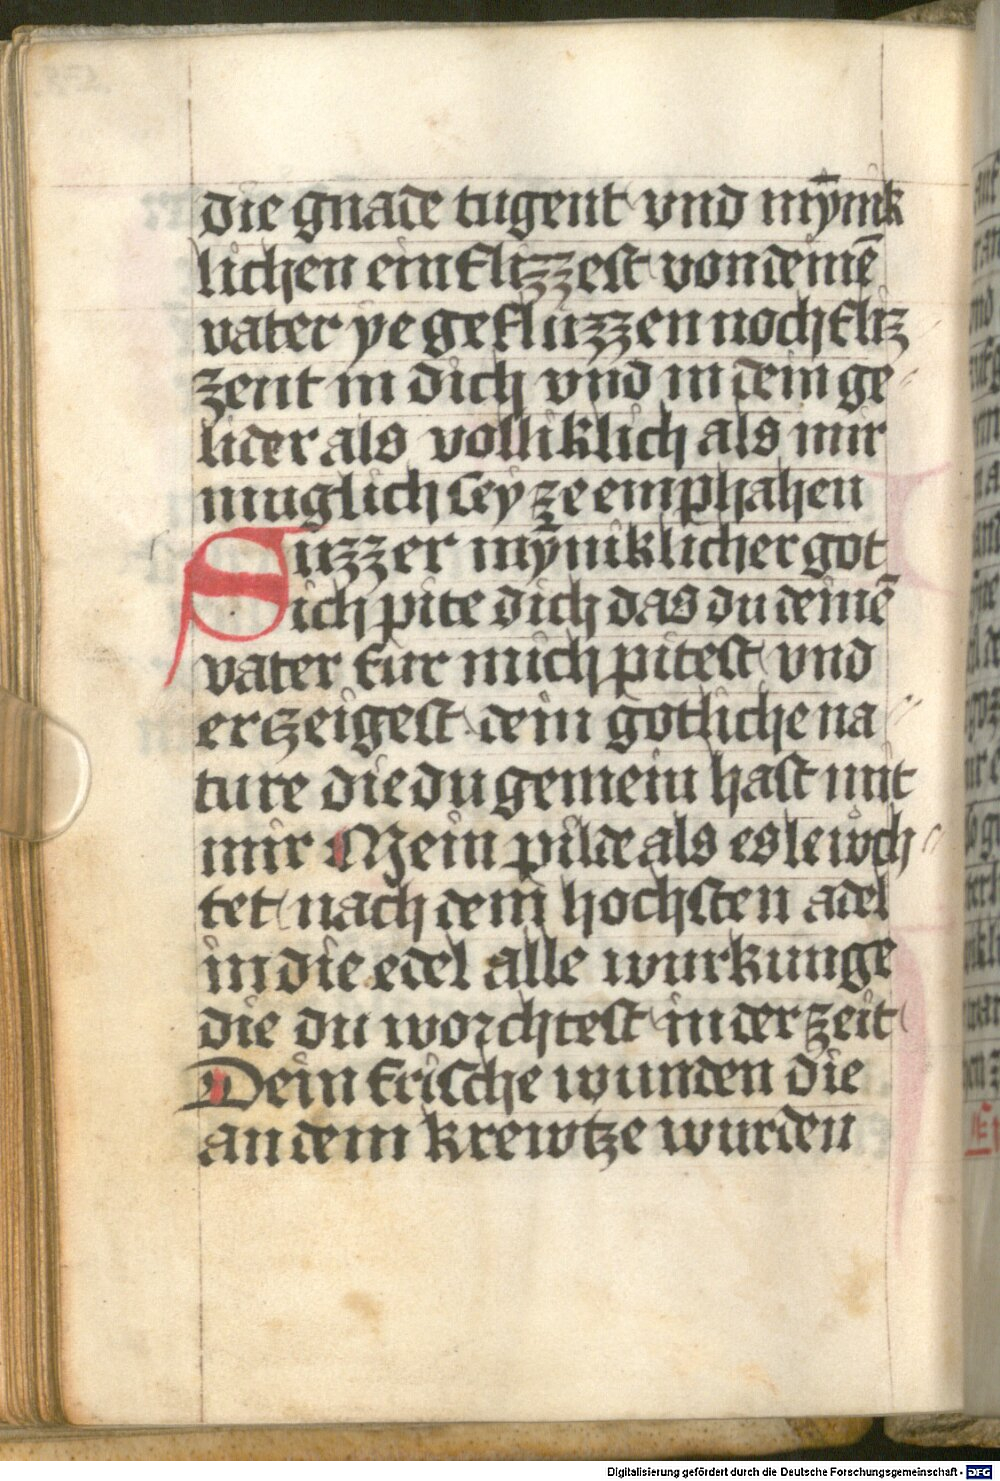 die gnade tugent vnd mȳnik
lichen ein flizzest von deinē
vater ye gefluzzen noch fliz
zent in dich vnd in dein ge
lider als volliklich als mir
muglich sey ze emphahen
Suzzer mȳniklicher got
ich pite dich das du deinē
vater fur mich pitest vnd
erzeigest dein gotliche na
ture die du gemein hast mit
mir Mein pilde als es lewch
tet nach dem hochsten adel
in die edel alle wurkunge
die du worchtest in der zeit
Dein frische wunden die
an dem krewtze wurden
Digitalisierung gefördert durch die Deutsche Forschungsgemeinschaft - DFG